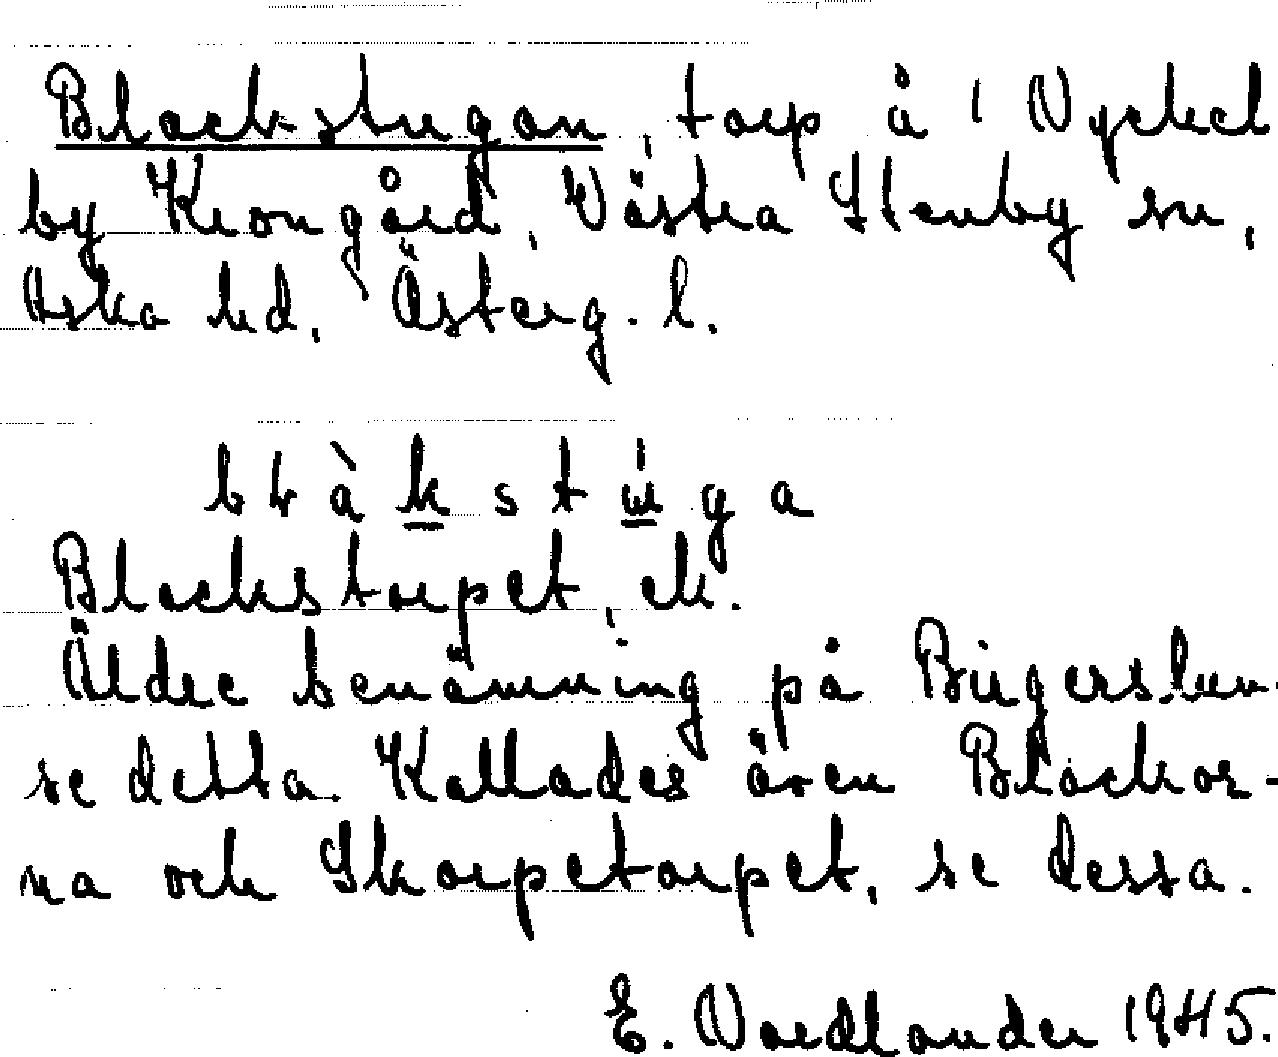 Blockstugan, torp å 1 Nyckel
by Krongård, Västra Stenby sn,
Aska hd, Österg. l.
Blockstorpet, ek.
Äldre benämning på Birgerslun.
se detta. Kallades även Blockor-
na och Skorpetorpet, se dessa.
E. Nordlander 1945.